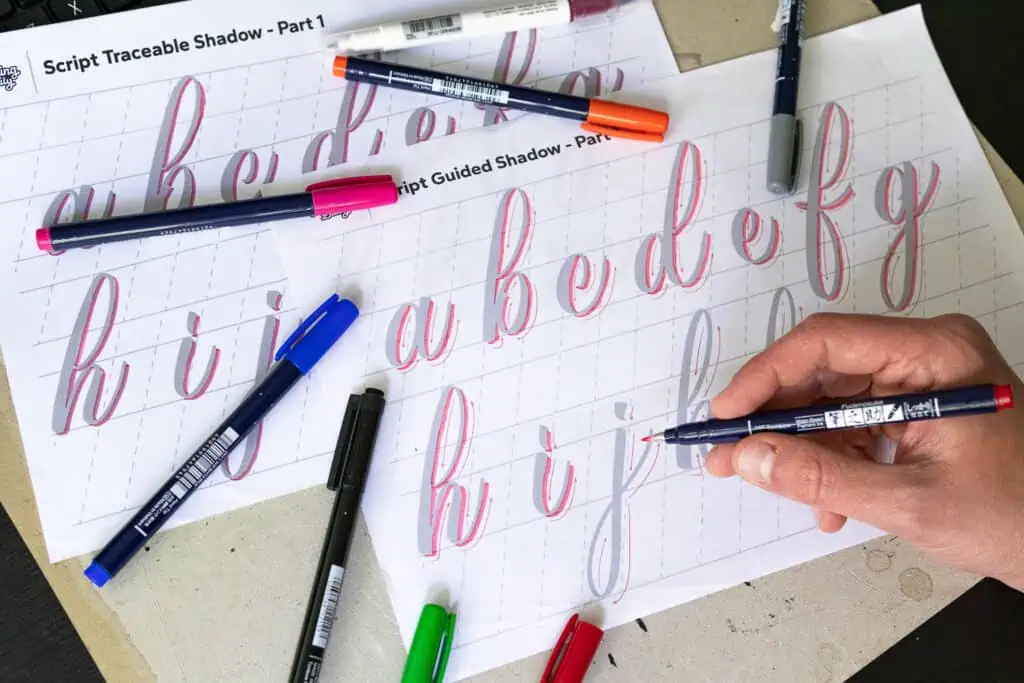 Script Traceable Shadow - Part 1
a b c d e f g
h i j
ript Guided Shadow - Part
a b c d e f g
h i j k
Fudenosuke